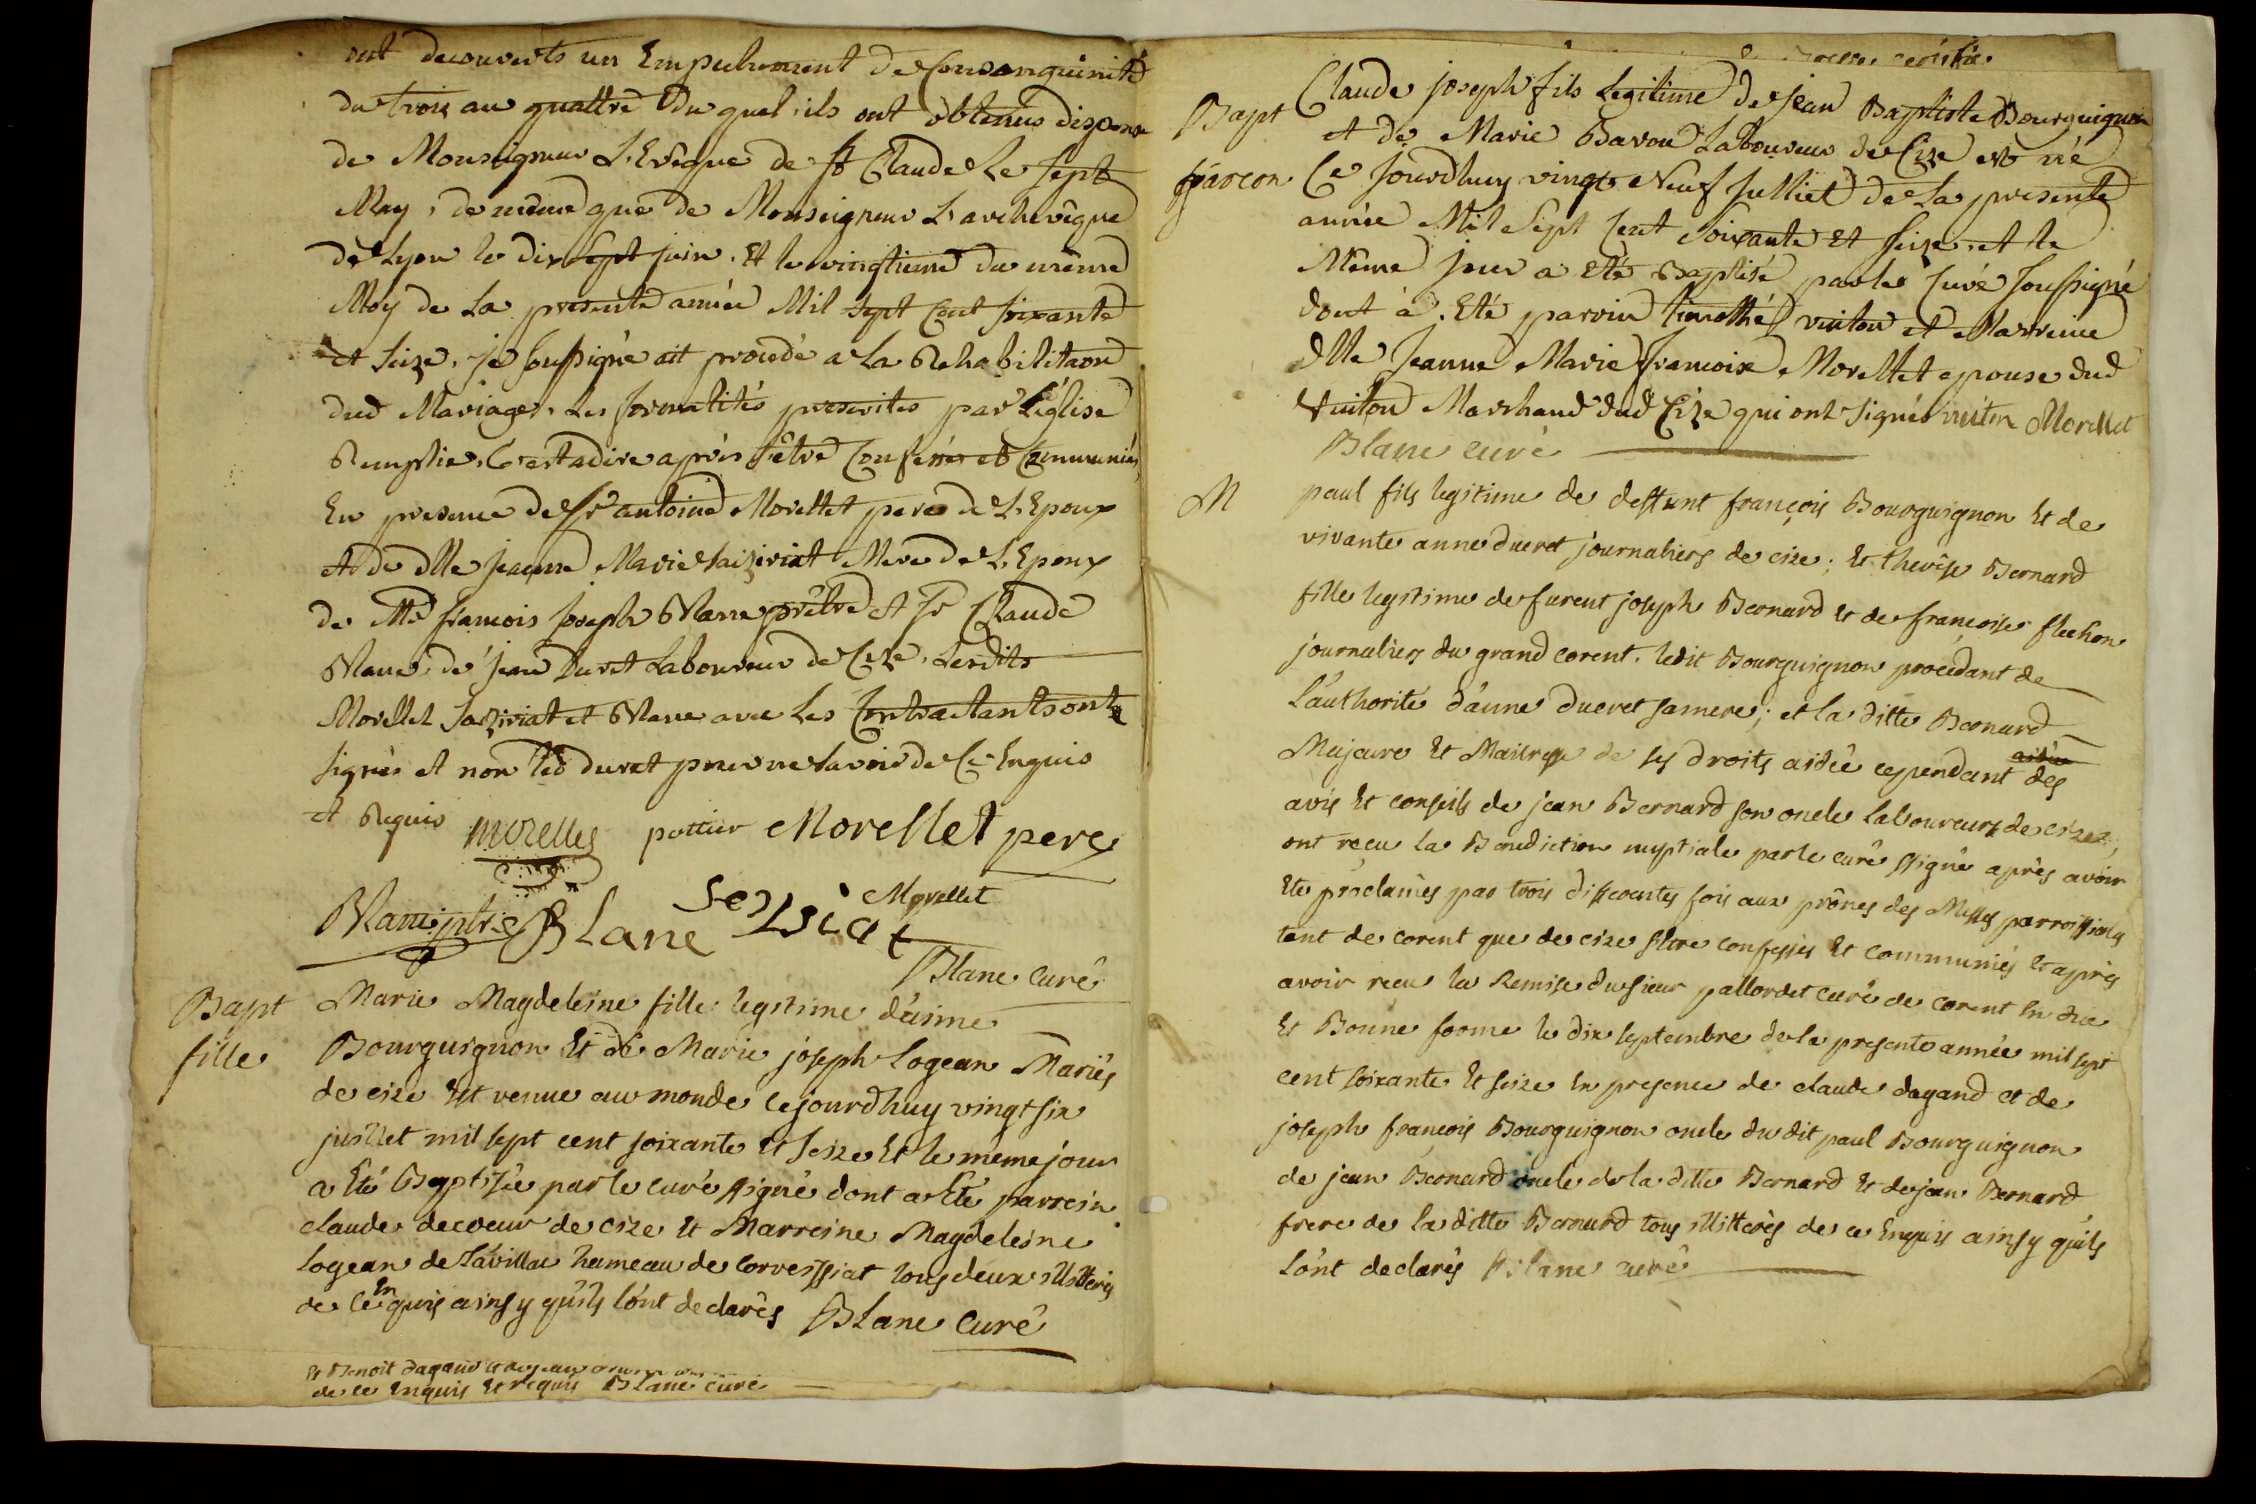 ont decouverts un Empechement de Consanguinité
du trois au quattre Du quel ils ont obtenus dispense
de Monseigneur L'Evêque de St Claude Le Sept
May, de même que de Monseigneur L'archevêque
de Lyon le dix Sept juin. Et le vingtieme du même
Moy de La presente année Mil Sept Cent Soixante
et Seize. je Soussigné ait procedé a La Rehabilitaon
dud Mariage. Les formalités prescrites par L'église
Remplie, C'estadire après s'être Confessés et Communiés
En presence de Sr antoine Morellet pere de L'Epoux
et de dlle jeanne Marie Saiziriat Mere de L'Epoux
de Me francois joseph Blanc prêtre et Sr Claude
Blanc, de jean Duret Laboureur de Cize. Lesdits
Morellet Saiziriat et Blanc avec Les Contractants ont
signés et non led duret pour ne Savoir de Ce Enquis
et Requis morelles pottier Morellet pere
Morellet
Blanc ptre Blanc Sezisiat
Blanc curé
Bapt Marie Magdeleine fille legitime d'aime
fille Bourguignon Et de Marie joseph Logean Mariés
de cize Est venue au monde cejourdhuy vingt six
juillet mil sept cent soixante Et Seize Et le meme jour
a Eté Baptisée par le curé ssigné dont a Eté parrein
claude decoeur de cize Et Marreine Magdeleine
Logean de Lavillat hameau de Corveissiat tous deux illitterés
de ce Enquis ainsy qu'ils l'ont declarés Blanc Curé
Et Benoit dagand et de jean
de ce Enquis Et requis Blanc curé
Bapt Claude joseph fils Legitime de jean Baptiste Bourguignon
et de Marie Bavou Laboureur de Cize est né
garcon Ce Jourdhuy vingt Neuf Julliet de La presente
année Mil Sept Cent Soixante Et Seize. et le
Même jour a Eté Baptisé par le Curé Soussigné
dont à. Eté parvin timothé vuiton et Marreine
dlle Jeanne Marie francoise Morellet epouse dud
Vuiton Marchand dud Cize qui ont signés vuiton Morellet
Blanc curé
M paul fils legitime de deffunt françois Bourguignon Et de
vivante anne ducret journaliers de cize; Et therèse Bernard
fille legitime de furent joseph Bernard Et de francoise flechon
journaliers du grand corent. ledit Bourguignon procédant de
L'authorité d'anne ducret sa mere; et la ditte Bernard
Majeure Et Maitresse de ses droits aidée cependant des
avis Et conseils de jean Bernard son oncle laboureurs de cize;
ont reçu la Benediction nuptiale par le curé ssigné après avoir
Eté proclamés par trois differentes fois aux prônes des Messes parroissiales
tant de corent que de cize s'Etre confessés Et communiés Et après
avoir reçu la Remise du sieur pallordet curé de corent En due
Et Bonne forme le dix septembre de la presente année mil sept
cent soixante Et seize En presence de claude dagand et de
joseph francois Bourguignon oncle du dit paul Bourguignon
de jean Bernard oncle de la ditte Bernard Et de jean Bernard
frere de la ditte Bernard tous illitterés de ce Enquis ainsy qu'ils
l'ont declarés Blanc curé